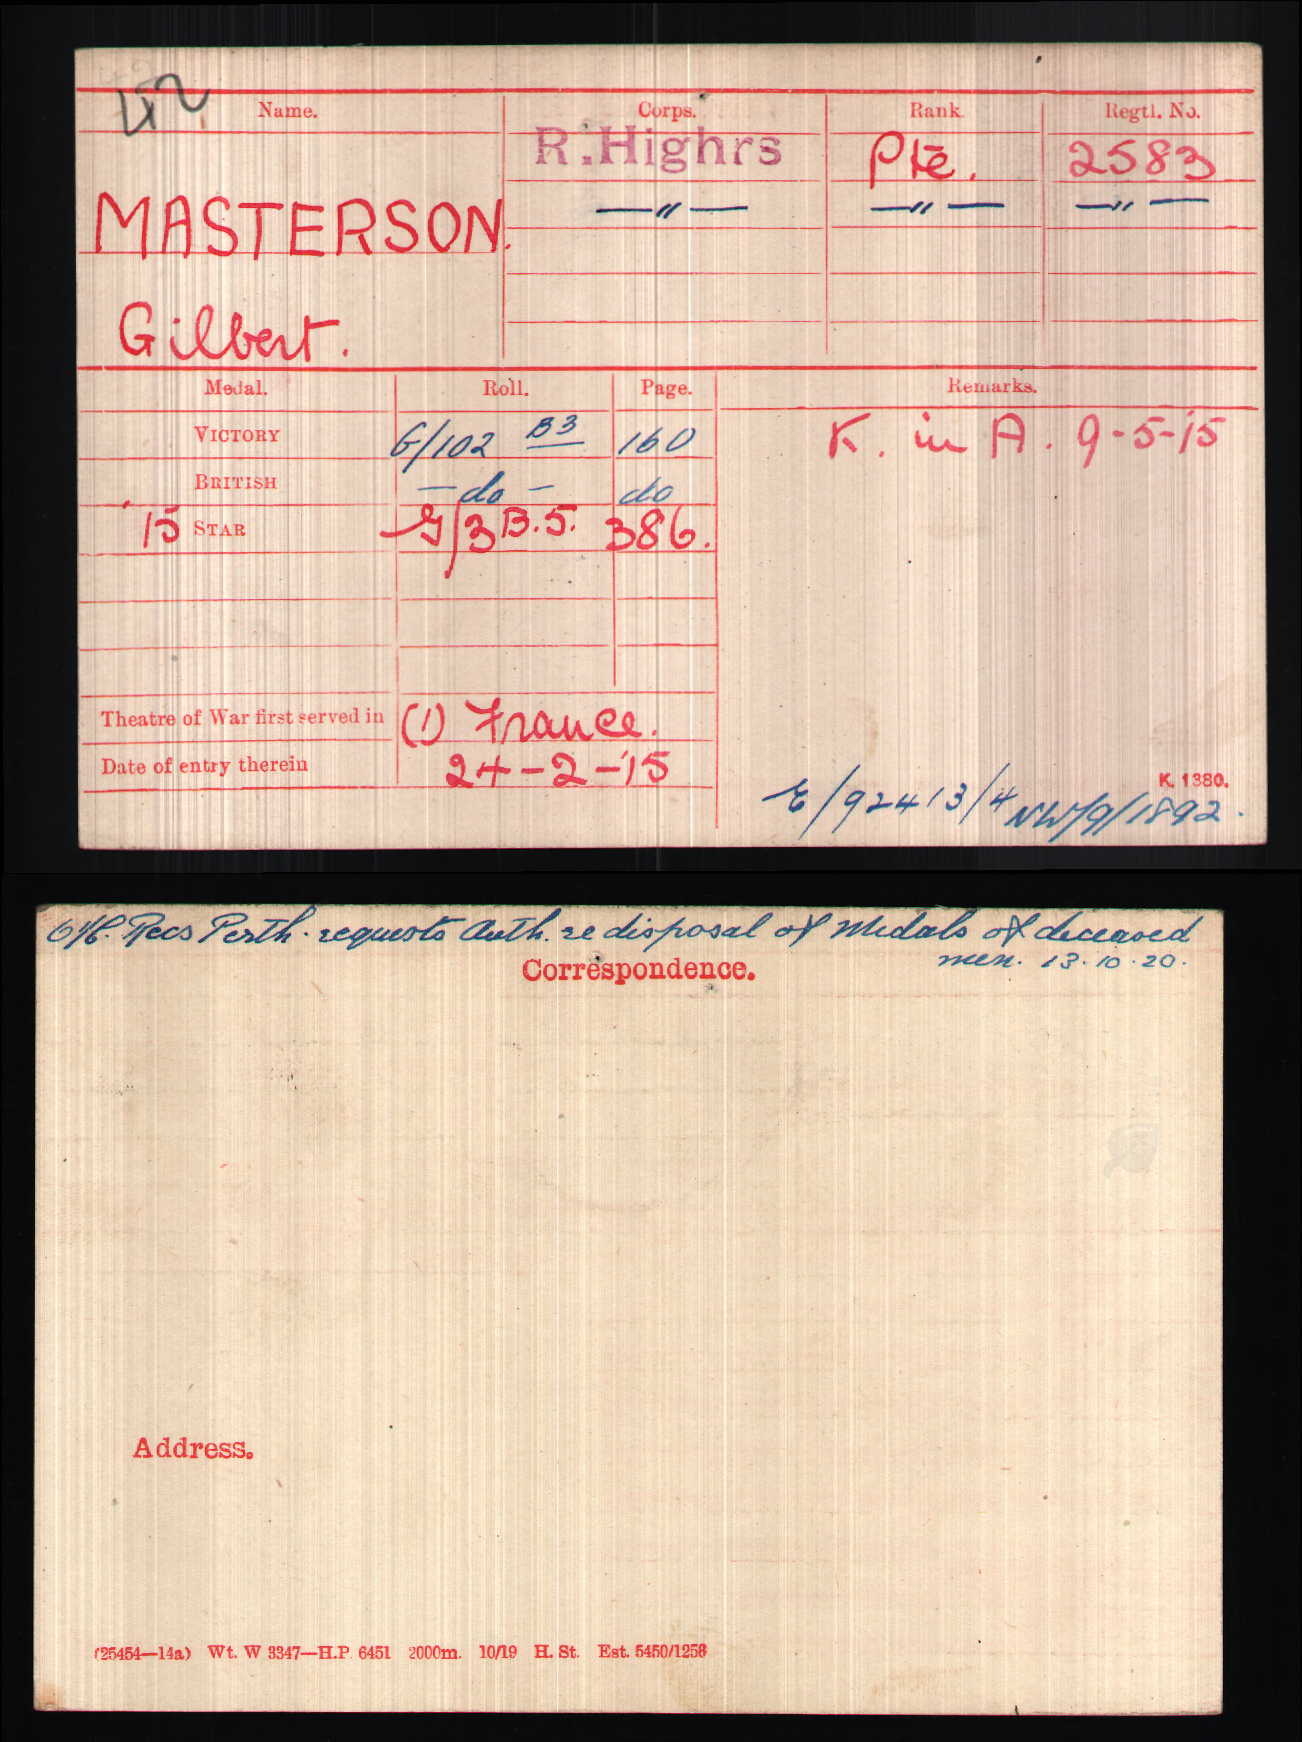 42
Name. Corps. Rank. Regtl. No.
R.Highrs Pte. 2583
MASTERSON. —〃— —〃— —〃—
Gilbert.
Medal. Roll. Page. Remarks.
VICTORY G/102 B3 160 K. in A. 9-5-15
BRITISH —do— do
'15 STAR G/3 B.5. 386.
Theatre of War first served in (1) France.
Date of entry therein 24-2-15
K. 1380.
E/92413/4 NW/9/1892.
O i/c. Recs Perth. requests Auth. re disposal of Medals of deceased
men. 13.10.20.
Correspondence.
Address.
(25454—14a) Wt. W 3347—H.P. 6451 2000m. 10/19 H. St. Est. 5450/1256